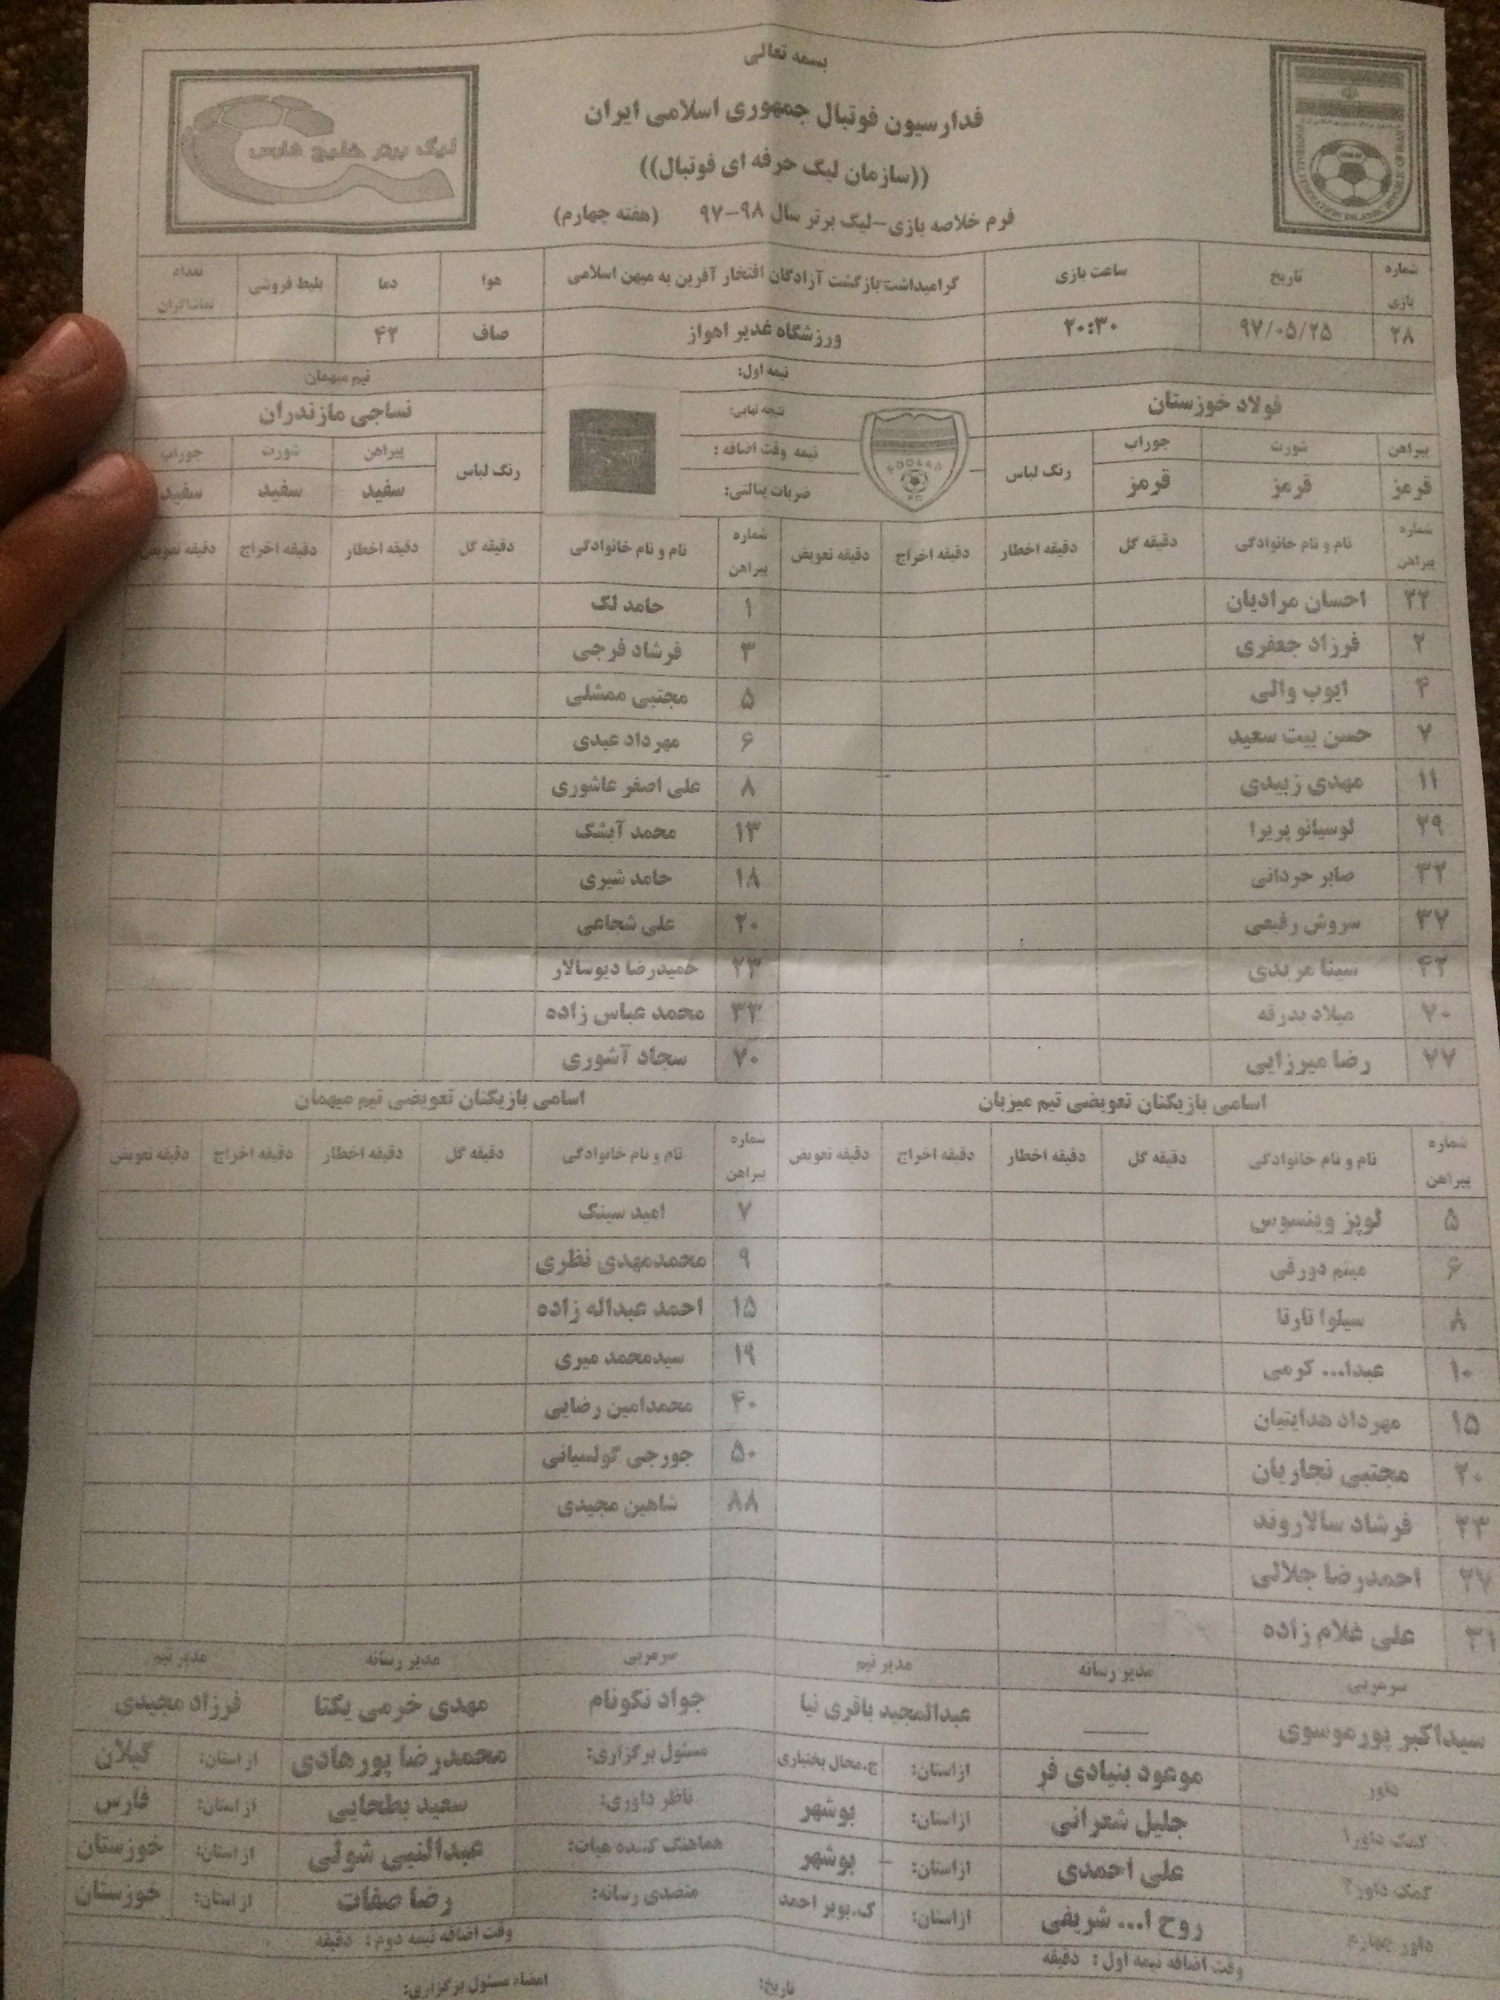 بسمه تعالی
فدارسیون فوتبال جمهوری اسلامی ایران
((سازمان لیگ حرفه ای فوتبال))
فرم خلاصه بازی-لیگ برتر سال ۹۸-۹۷ (هفته چهارم)
لیگ برتر خلیج فارس
FOOTBALL FEDERATION ISLAMIC REPUBLIC OF IRAN
شماره بازی تاریخ ساعت بازی گرامیداشت بازگشت آزادگان افتخار آفرین به میهن اسلامی هوا دما بلیط فروشی تعداد تماشاگران
۲۸ ۹۷/۰۵/۲۵ ۲۰:۳۰ ورزشگاه غدیر اهواز صاف ۴۲
نیمه اول: تیم میهمان
فولاد خوزستان نتیجه نهایی: نساجی مازندران
پیراهن شورت جوراب رنگ لباس نیمه وقت اضافه : رنگ لباس پیراهن شورت جوراب
قرمز قرمز قرمز ضربات پنالتی: سفید سفید سفید
FOOLAD FC
شماره پیراهن نام و نام خانوادگی دقیقه گل دقیقه اخطار دقیقه اخراج دقیقه تعویض شماره پیراهن نام و نام خانوادگی دقیقه گل دقیقه اخطار دقیقه اخراج دقیقه تعویض
۲۲ احسان مرادیان ۱ حامد لک
۲ فرزاد جعفری ۳ فرشاد فرجی
۴ ایوب والی ۵ مجتبی ممشلی
۷ حسن بیت سعید ۶ مهرداد عبدی
۱۱ مهدی زبیدی ۸ علی اصغر عاشوری
۲۹ لوسیانو پریرا ۱۳ محمد آبشک
۳۲ صابر حردانی ۱۸ حامد شیری
۳۷ سروش رفیعی ۲۰ علی شجاعی
۴۲ سینا مریدی ۲۳ حمیدرضا دیوسالار
۷۰ میلاد بدرقه ۳۳ محمد عباس زاده
۷۷ رضا میرزایی ۷۰ سجاد آشوری
اسامی بازیکنان تعویضی تیم میزبان اسامی بازیکنان تعویضی تیم میهمان
شماره پیراهن نام و نام خانوادگی دقیقه گل دقیقه اخطار دقیقه اخراج دقیقه تعویض شماره پیراهن نام و نام خانوادگی دقیقه گل دقیقه اخطار دقیقه اخراج دقیقه تعویض
۵ لوپز وینسوس ۷ امید سینک
۶ میثم دورقی ۹ محمدمهدی نظری
۸ سیلوا تارتا ۱۵ احمد عبداله زاده
۱۰ عبدا... کرمی ۱۹ سیدمحمد میری
۱۵ مهرداد هدایتیان ۴۰ محمدامین رضایی
۲۰ مجتبی نجاریان ۵۰ جورجی گولسیانی
۲۳ فرشاد سالاروند ۸۸ شاهین مجیدی
۲۷ احمدرضا جلالی
۳۱ علی غلام زاده
سرمربی مدیر رسانه مدیر تیم سرمربی مدیر رسانه مدیر تیم
سیداکبر پورموسوی عبدالمجید باقری نیا جواد نکونام مهدی خرمی یکتا فرزاد مجیدی
داور موعود بنیادی فر از استان: چ.محال بختیاری مسئول برگزاری: محمدرضا پورهادی از استان: گیلان
کمک داور۱ جلیل شعرانی از استان: بوشهر ناظر داوری: سعید بطحایی از استان: فارس
کمک داور۲ علی احمدی از استان: بوشهر هماهنگ کننده هیات: عبدالنبی شولی از استان: خوزستان
داور چهارم روح ا... شریفی از استان: ک.بویر احمد متصدی رسانه: رضا صفات از استان: خوزستان
وقت اضافه نیمه اول : دقیقه وقت اضافه نیمه دوم : دقیقه
تاریخ: امضاء مسئول برگزاری: